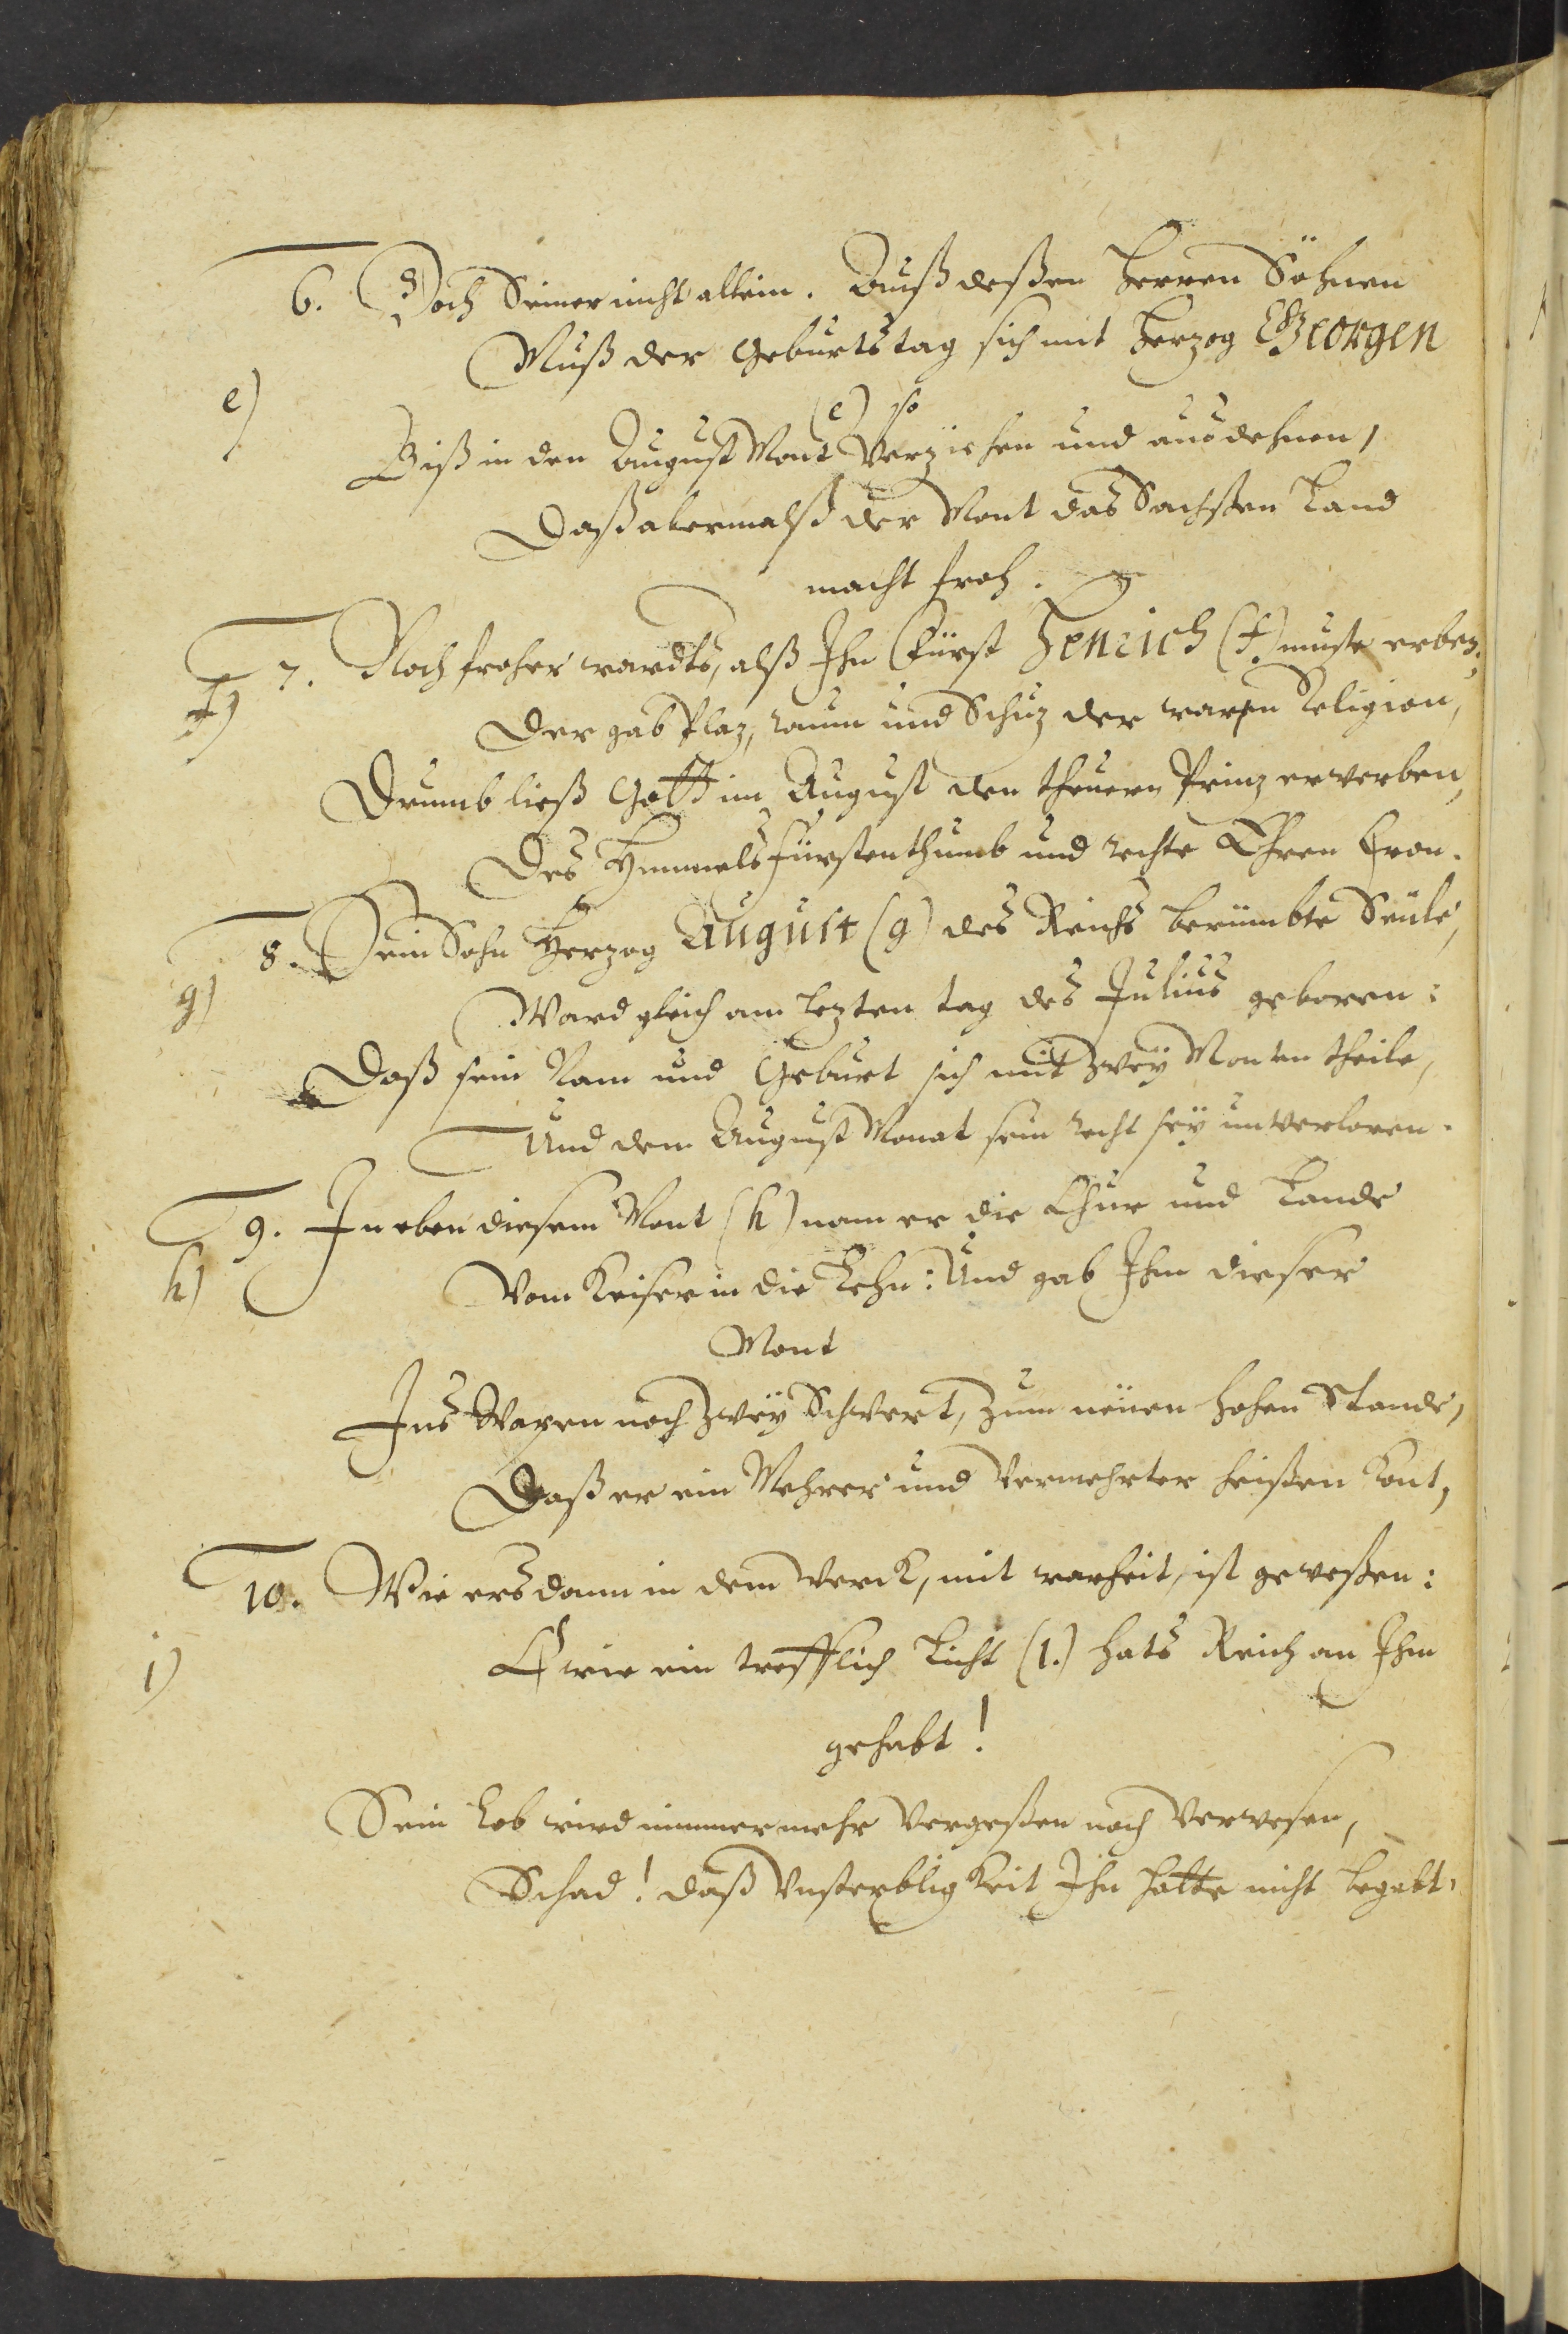 6. Doch Seiner nicht allein. Auß deßen Herren Söhnen
Muß der Geburtstag sich mit Herzog Georgen
(e) so
e)
Biß in den August Mont verziehen und ausdehnen,
Daß abermalß der Mont das Sachßen Land
macht froh.
7. Noch froher wardts, alß Ihn Fürst Henrich (f) muste erben,
f)
Der gab Plaz, raum und Schuz der waren Religion,
Drumb ließ Gott im August den theuern Prinz erwerben,
Des Himmels Fürstenthumb und rechte Ehren Cron.
8. Sein Sohn Herzog August (g) des Reichs berümbte Seule,
g)
Ward gleich am lezten tag des Julius geboren:
Daß sein Nam und Geburt sich mit zwey Monten theile,
Und dem August Monat sein recht sey unverloren.
9. In eben diesem Mont (h) nam er die Chur und Lande
h)
Vom Keiser in die Lehn: Und gab Ihm dieser
Mont
Ins Wapen noch zwey Schwert, zum neuen hohen Stande,
Daß er ein Mehrer und Vermehrter heißen kont,
10. Wie ers dann in dem Werck, mit warheit, ist geweßen:
i)
O wie ein trefflich Licht (i.) hats Reich an Ihm
gehabt!
Sein Lob wird nimmermehr vergeßen noch verwesen,
Schad! daß Unsterbligkeit Ihn hatte nicht begabt.